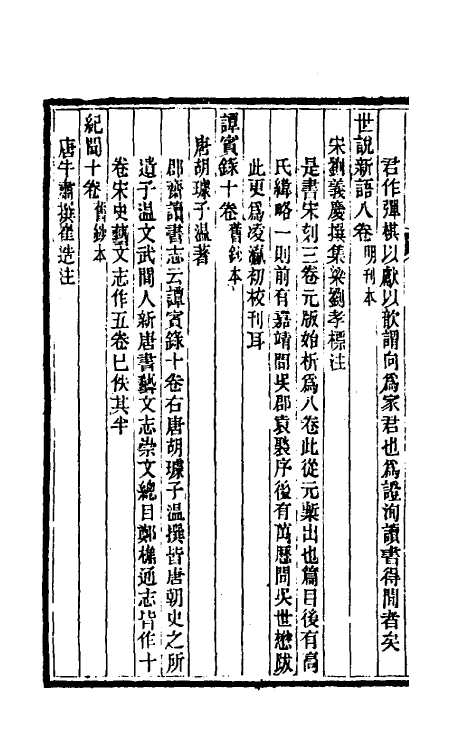 君作彈棋以獻以歆謂向爲家君也爲證洵讀書得閒者矣
世說新語八卷明刊本
宋劉義慶撰集梁劉孝標注
是書宋刻三卷元版始析爲八卷此從元槧出也篇目後有高
氏緯略一則前有嘉靖間吳郡袁褧序後有萬歷間吳世懋跋
此更爲凌瀛初校刊耳
譚賓錄十卷舊鈔本
唐胡璩子溫著
郡齋讀書志云譚賓錄十卷右唐胡璩子溫撰皆唐朝史之所
遺子溫文武間人新唐書藝文志崇文總目鄭樵通志皆作十
卷宋史藝文志作五卷已佚其半
紀聞十卷舊鈔本
唐牛肅撰崔造注